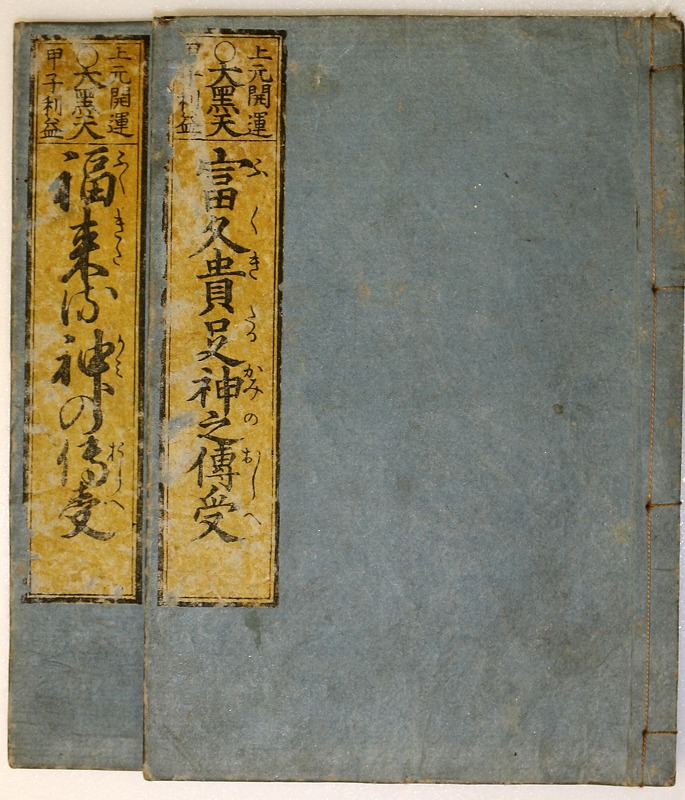 上元開運
○大黑天
甲子利益
富久貴足神之傳受
ふくきたるかみのおしへ
上元開運
○大黑天
甲子利益
福来る神の傳受
ふくきたかみおしへ